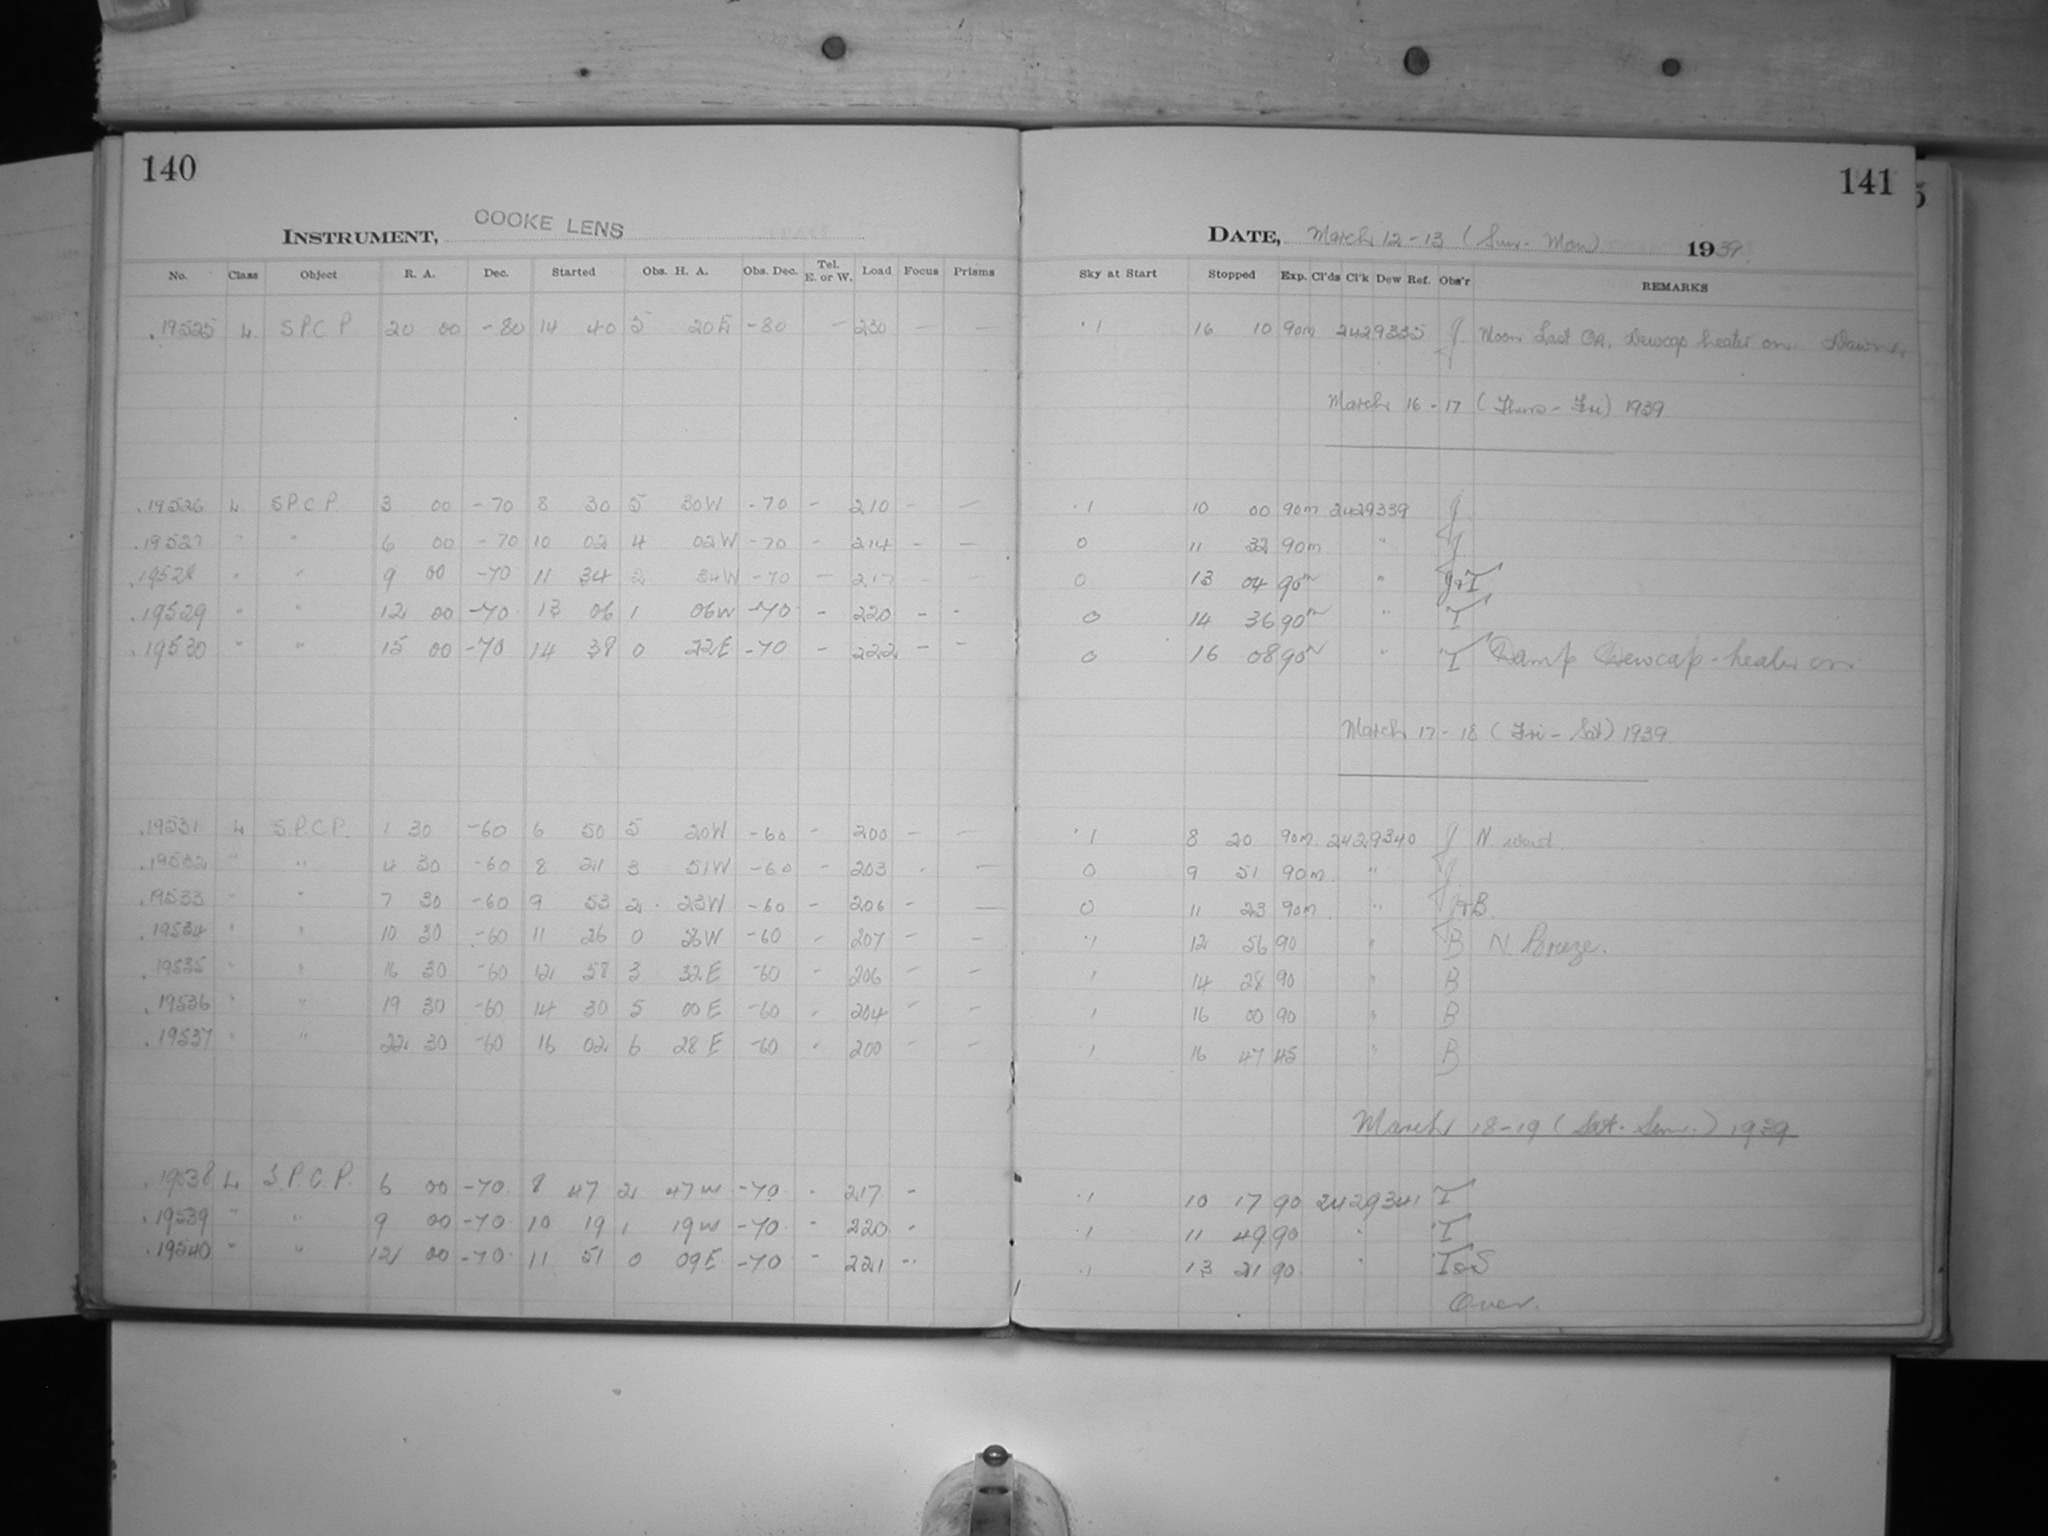 140
INSTRUMENT, COOKE LENS
No. Class Object R. A. Dec. Started Obs. H. A. Obs. Dec. Tel. E. or W. Load Focus Prisms
.19525 L S.P.C.P. 20 00 -80 14 40 5 20E -80 - 230 - -
.19526 L S.P.C.P. 3 00 -70 8 30 5 30W -70 - 210 - -
.19527 " " 6 00 -70 10 02 4 02W -70 - 214 - -
.19528 " " 9 00 -70 11 34 2 34W -70 - 217 - -
.19529 " " 12 00 -70 13 06 1 06W -70 - 220 - -
.19530 " " 15 00 -70 14 38 0 22E -70 - 222 - -
.19531 L S.P.C.P. 1 30 -60 6 50 5 20W -60 - 200 - -
.19532 " " 4 30 -60 8 21 3 51W -60 - 203 - -
.19533 " " 7 30 -60 9 53 2 23W -60 - 206 - -
.19534 " " 10 30 -60 11 26 0 56W -60 - 207 - -
.19535 " " 16 30 -60 12 58 3 32E -60 - 206 - -
.19536 " " 19 30 -60 14 30 5 00E -60 - 204 - -
.19537 " " 22 30 -60 16 02 6 28E -60 - 200 - -
.19538 L S.P.C.P. 6 00 -70 8 47 2 47W -70 - 217 -
.19539 " " 9 00 -70 10 19 1 19W -70 - 220 -
.19540 " " 12 00 -70 11 51 0 09E -70 - 221 -
141
DATE, March 12-13 (Sun-Mon) 1939
Sky at Start Stopped Exp. Cl'ds Cl'k Dew Ref. Obs'r REMARKS
.1 16 10 90m 2429335 J. Moon Last Qr. Dewcap heater on. Dawn.
March 16-17 (Thurs-Fri) 1939
.1 10 00 90m 2429339 J
0 11 32 90m " J
0 13 04 90m " J&T
0 14 36 90m " T
0 16 08 90m " T Damp Dewcap-heater on.
March 17-18 (Fri-Sat) 1939
.1 8 20 90m 2429340 J N. wind.
0 9 51 90m " J
0 11 23 90m " J&B.
.1 12 56 90 " B N. Breeze.
1 14 28 90 " B
1 16 00 90 " B
1 16 47 45 " B
March 18-19 (Sat-Sun.) 1939
.1 10 17 90 2429341 T
.1 11 49 90 " T
.1 13 21 90 " T&S
Over.